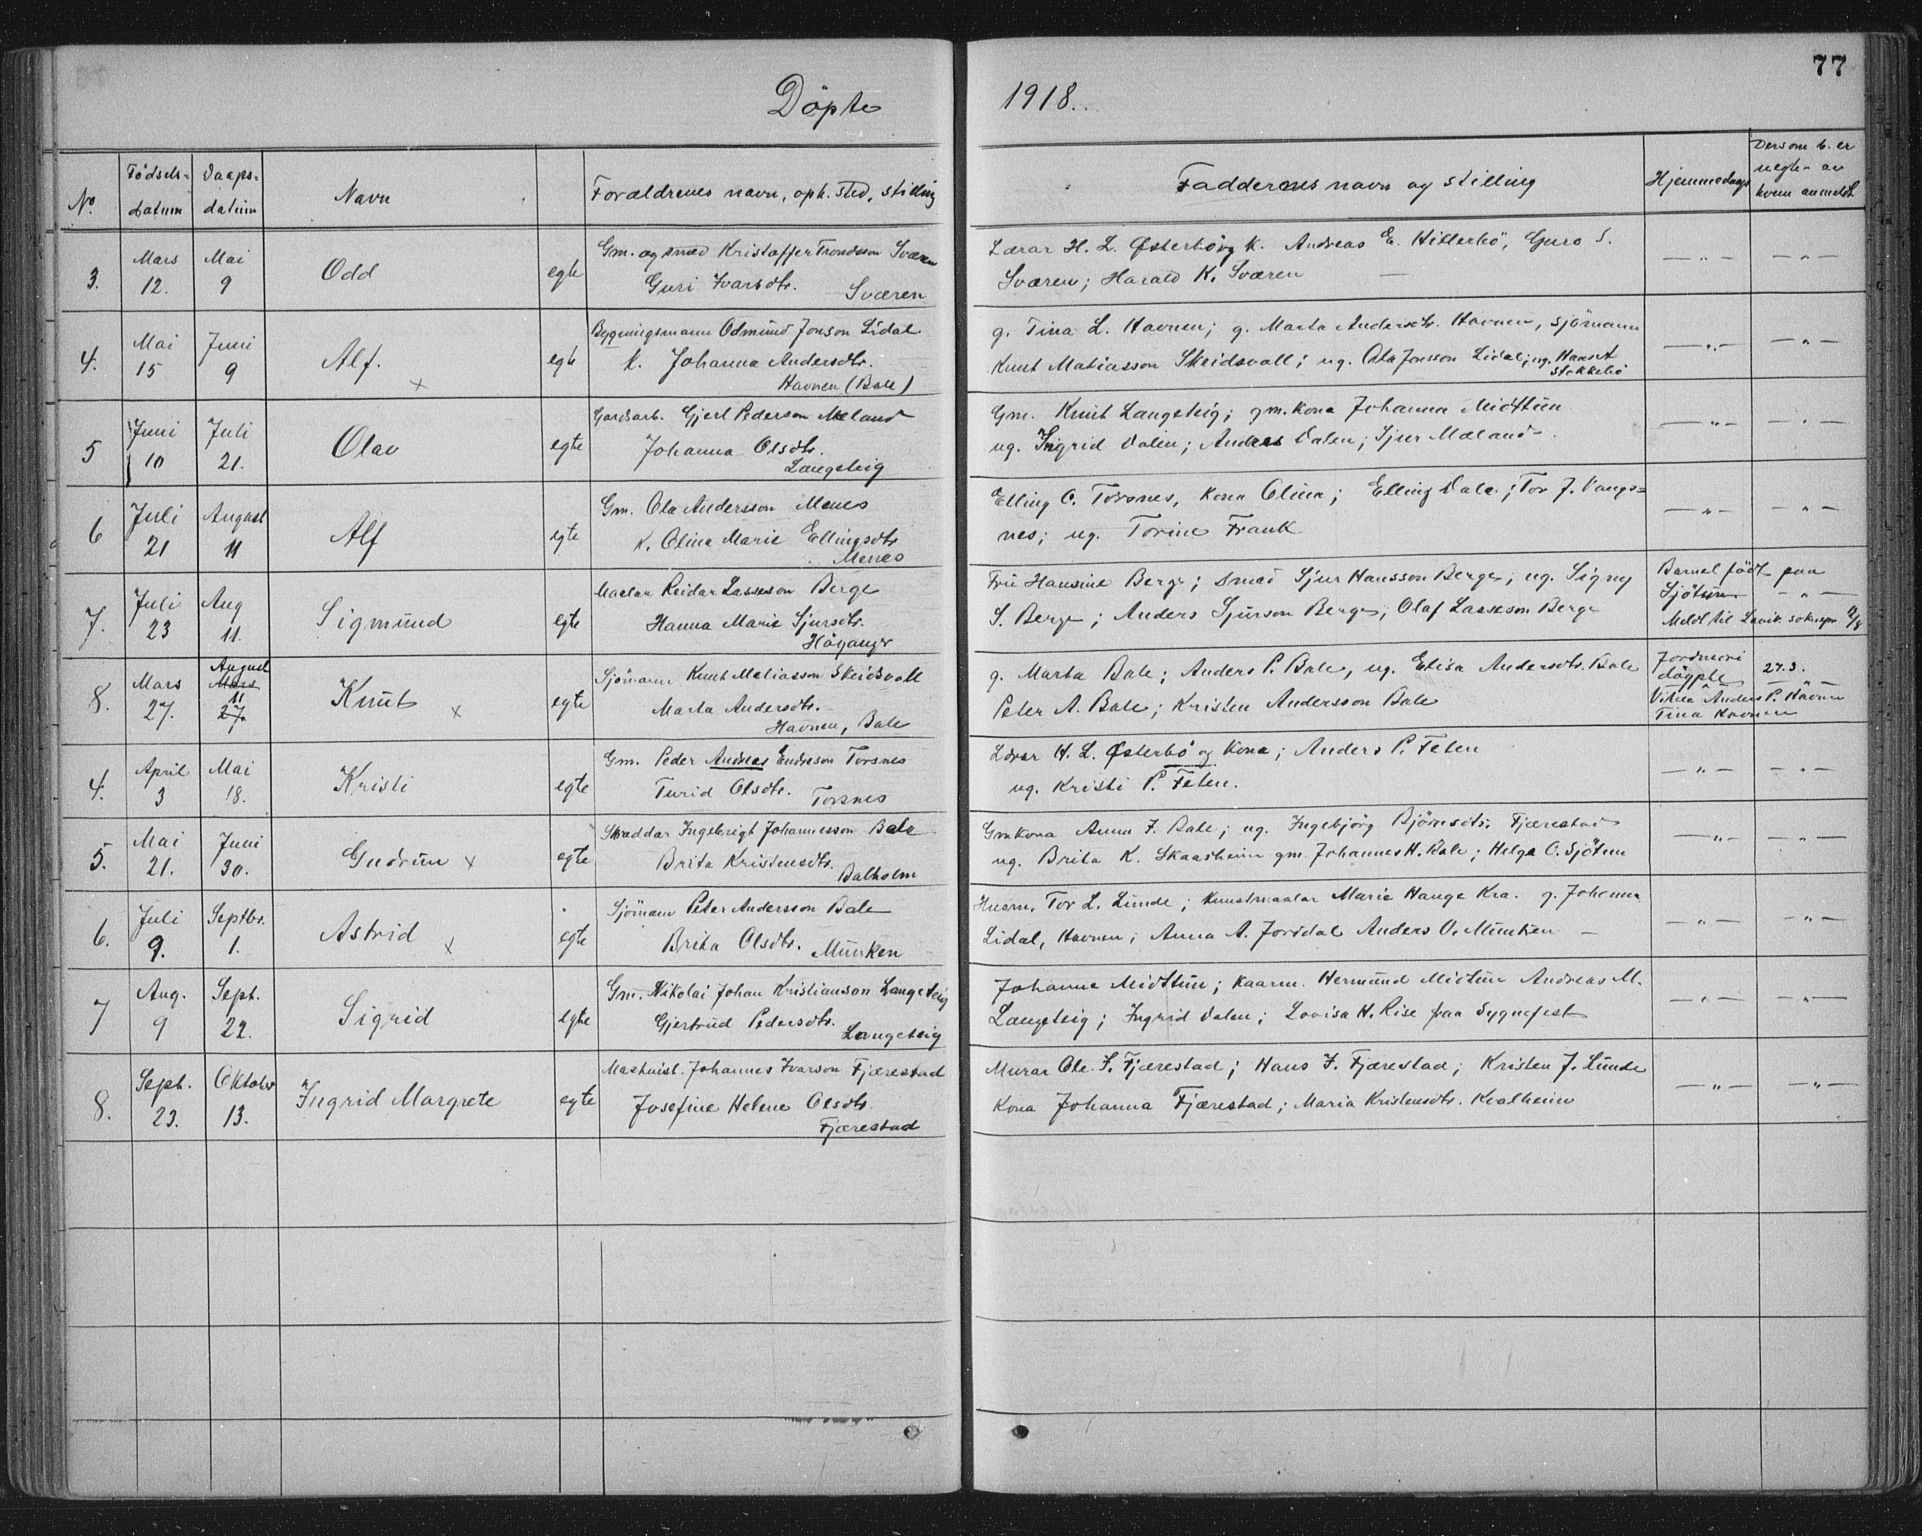 77
Döpte 1918.
No. Födsels-datum Daaps-datum Navn Forældrenes navn, oph. sted, stilling Faddernes navn og stilling Hjemmedaap Dersom b. er uegte av hvem anmeldt
3. Mars 12. Mai 9 Odd egte Gm. og smed Kristaffer Trondsson Sværen
Guri Ivarsdtr. Sværen
Lærar H. L. Østerbö og k. Andreas E. Hitterbö, Guro S.
Sværen; Harald K. Sværen — " — — " —
4. Mai 15 Juni 9 Alf. x egte Bygningsmann Odmund Jonson Lidal
k. Johanna Andersdtr.
Havnen (Bale)
g. Tina L. Havnen; g. Marta Andersdtr. Havnen, Sjömann
Knut Matiasson Skeidsvoll; ug. Ola Jonsson Lidal; ug. Hans A Stokkebö — " — — " —
5 Juni 10 Juli 21. Olav egte Gardsarb. Gjert Pederson Mæland
Johanna Olsdtr.
Langeteig
Gm. Knut Langeteig; gm. kona Johanna Midttun
ug. Ingrid Dalen; Anders Dalen; Sjur Mæland. — " — — " —
6 Juli 21 August 11 Alf egte Gm. Ola Andersson Menes
k. Olina Marie Ellingsdtr.
Menes
Elling O. Torsnes, kona Olina; Elling Dale; Tor J. Vangs=
nes; ug. Torine Frank — " — — " —
7. Juli 23 Aug 11. Sigmund egte Maalar Reidar Lasseson Berge
Hanna Marie Sjursdtr.
Höyanger
Fru Hansine Berge; Smed Sjur Hansson Berge; ug. Signy
S. Berge; Anders Sjurson Berge; Olaf Lasseson Berge
Barnet födt paa
Sjötun — " —
Meldt til Lavik sokneprest 12/8
8. Mars 27. August Mars 11 27. Knut x egte Sjömann Knut Matiasson Skeidsvoll
Marta Andersdtr.
Havnen, Bale
g. Marta Bale; Anders P. Bale, ug. Elisa Andersdtr. Bale
Peter A. Bale; Kristen Andersson Bale
Jordmori döypte 27.3. — " —
Vitna Anders P. Havnen
Tina Havnen
4. April 3 Mai 18. Kristi egte Gm. Peder Andreas Endreson Torsnes
Turid Olsdtr. Torsnes
Lærar H. L. Østerbö og kona; Anders P. Feten
ug. Kristi P. Feten. — " — — " —
5. Mai 21. Juni 30. Gudrun x egte Skræddar Ingebrigt Johannesson Bale
Brita Kristensdtr.
Balholm
Gmkona Anna J. Bale; ug. Ingebjörg Björnsdtr. Fjærestad
ug. Brita K. Skaasheim gm. Johannes H. Bale; Helge O. Sjötun — " — — " —
6. Juli 9. Septbr. 1. Astrid x egte Sjömann Peter Andersson Bale
Brita Olsdtr. Munken
Husm. Tor L. Lunde; kunstmaalar Marie Hauge Kra. g. Johanna
Lidal, Havnen; Anna A. Jorddal Anders O. Munken — — " — — " —
7 Aug. 9 Sept. 22. Sigrid egte Gm. Nikolai Johan Kristianson Langeteig
Gjertrud Pedersdtr.
Langeteig
Johanne Midttun; Kaarm. Hermund Midtun Andreas M.
Langeteig; Ingrid Dalen; Lovisa H. Rise paa Sygnefest — " — — " —
8. Sept. 23. Oktober 13. Ingrid Margrete egte Maskinist. Johannes Ivarson Fjærestad
Josefine Helene Olsdtr.
Fjærestad
Murar Ole J. Fjærestad; Hans J. Fjærestad; Kristen J. Lunde
kona Johanna Fjærestad; Maria Kristensdtr. Kvalheim — " — — " —